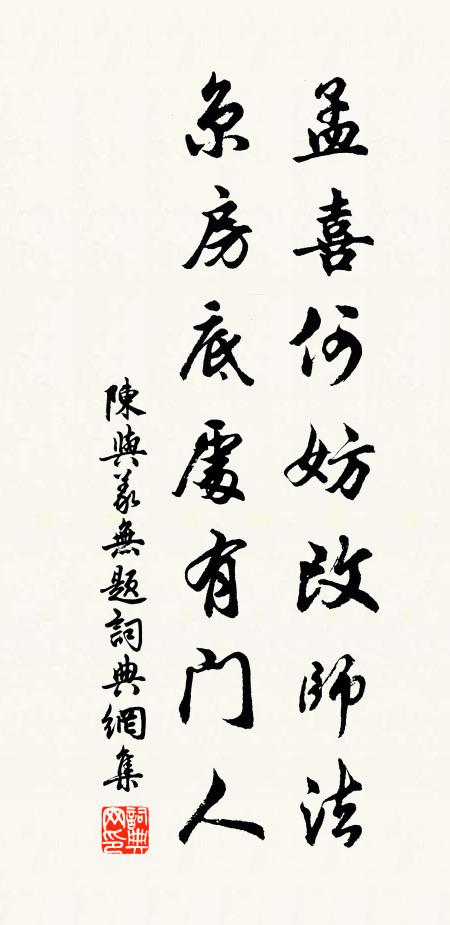 孟喜何妨改師法
京房底處有門人
陳與義無題詞典網集
詞典網印